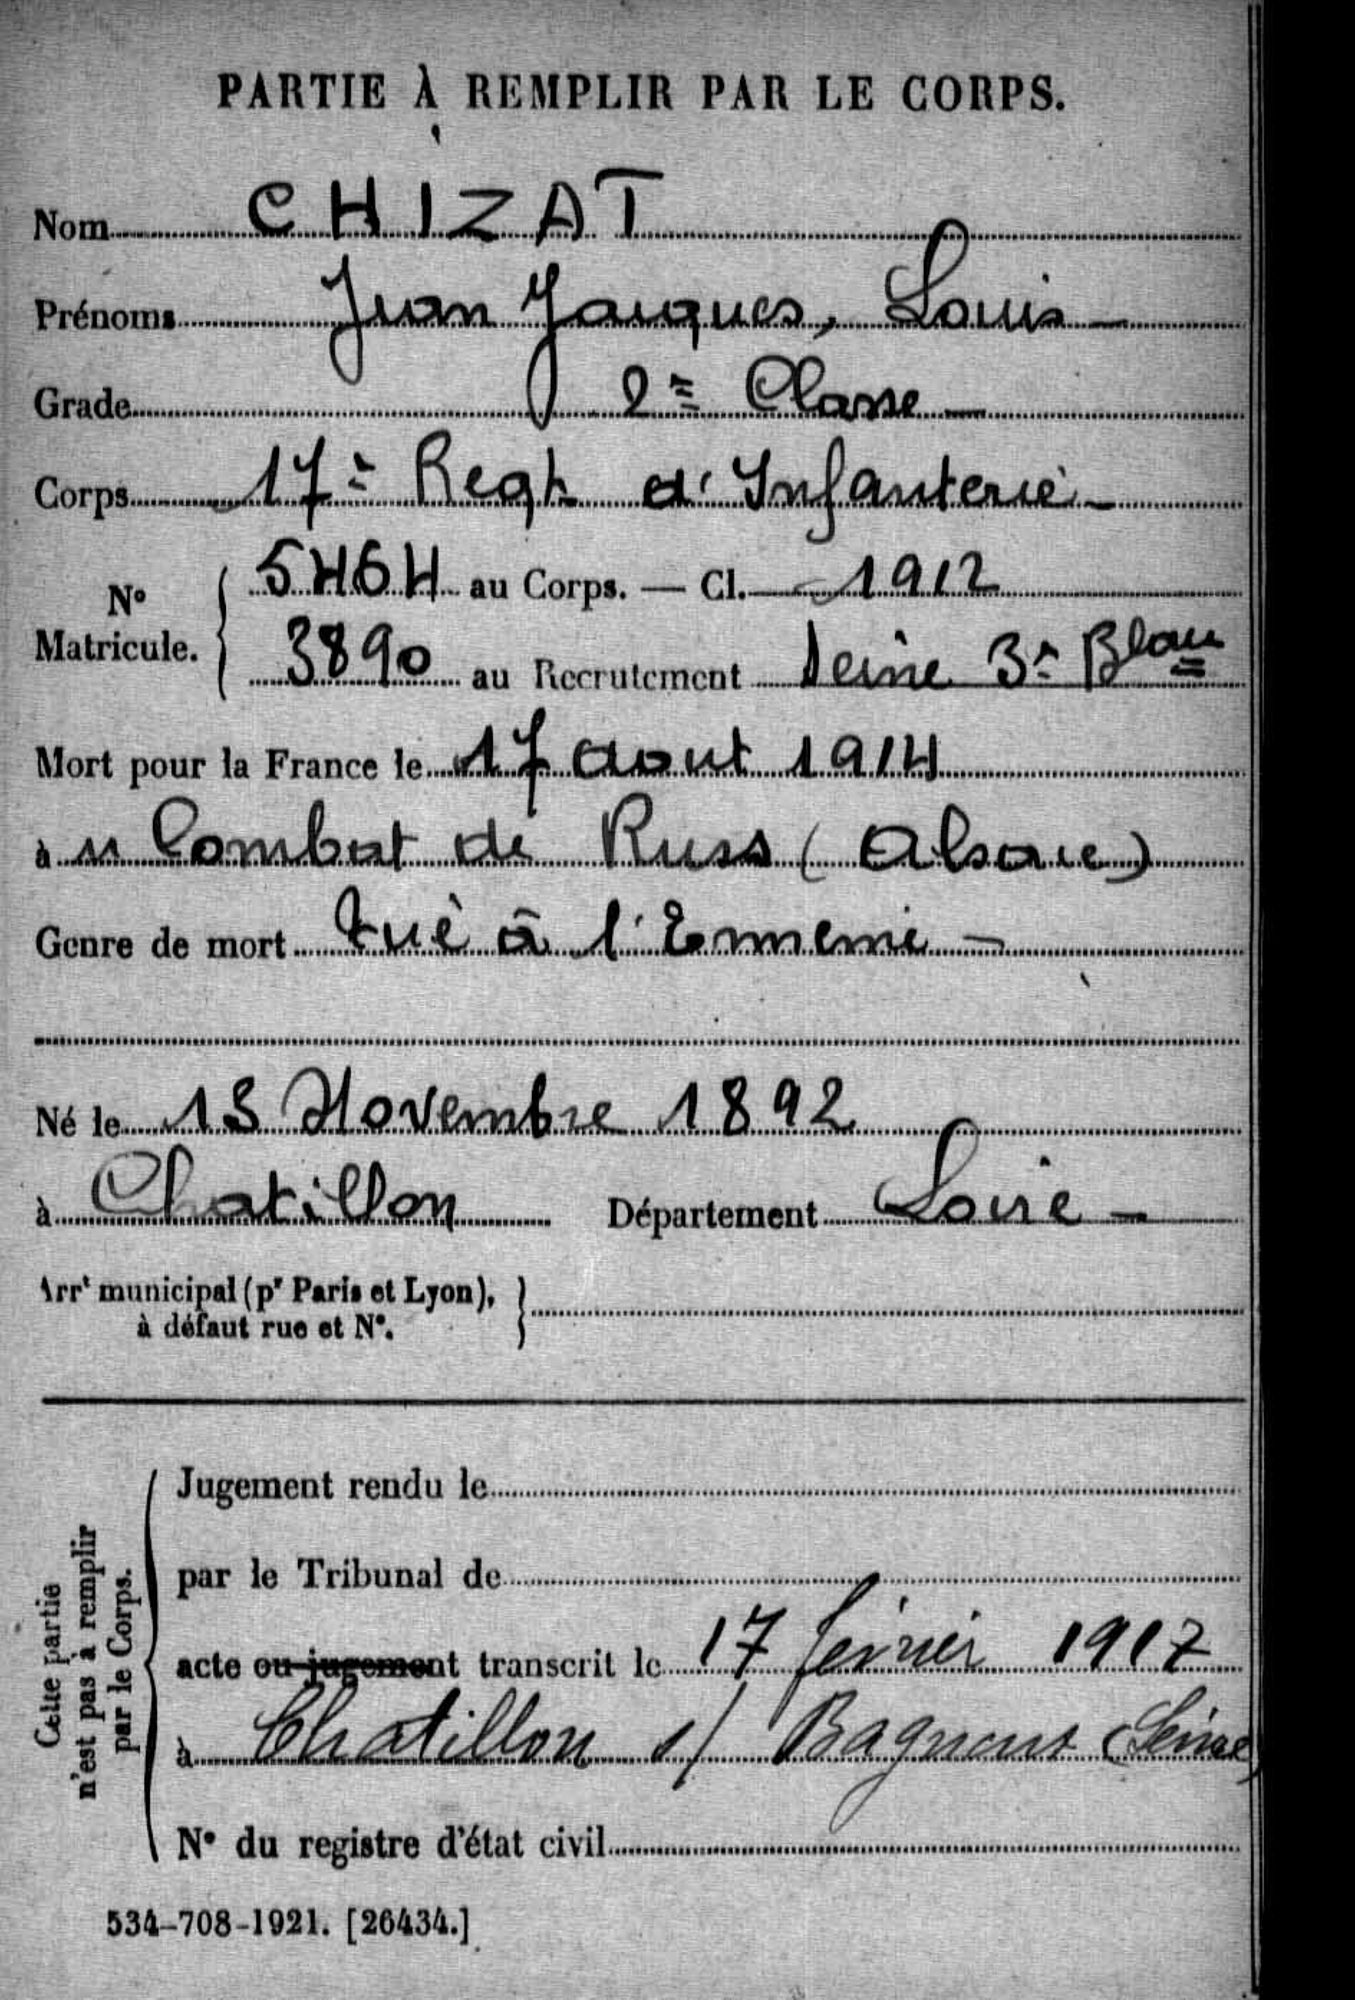 PARTIE À REMPLIR PAR LE CORPS.
Nom CHIZAT
Prénoms Jean Jacques, Louis
Grade 2e Classe
Corps 17e Regt d'Infanterie
N° Matricule. 5464 au Corps. — Cl. 1912
3890 au Recrutement Seine 3e Bau
Mort pour la France le 17 aout 1914
à Combat de Russ (Alsace)
Genre de mort tué à l'Ennemi
Né le 13 Novembre 1892
à Chatillon Département Loire
Arrt municipal (pr Paris et Lyon),
à défaut rue et N°.
Cette partie
n'est pas à remplir
par le Corps.
Jugement rendu le
par le Tribunal de
acte ou jugement transcrit le 17 février 1917
à Chatillon s/ Bagneux (Seine)
N° du registre d'état civil
534-708-1921. [26434.]